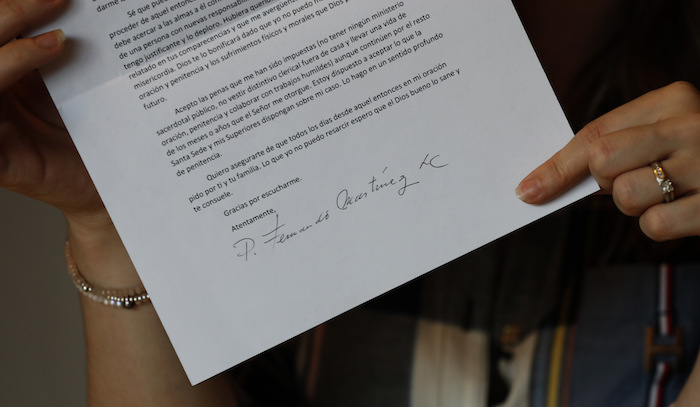 darme lo
Sé que pued
proceder de aquel entonc
debe acercar a las almas a él con
de una persona con nuevas responsabilid
tengo justificante y lo deploro. Hubiera querid
relatado en tus comparecencias y que me avergüenz
misericordia. Dios te lo bonificará dado que yo no puedo m
oración y penitencia y los sufrimientos físicos y morales que Dios p
futuro.
Acepto las penas que me han sido impuestas (no tener ningún ministerio
sacerdotal público, no vestir distintivo clerical fuera de casa y llevar una vida de
oración, penitencia y colaborar con trabajos humildes) aunque continúen por el resto
de los meses o años que el Señor me otorgue. Estoy dispuesto a aceptar lo que la
Santa Sede y mis Superiores dispongan sobre mi caso. Lo hago en un sentido profundo
de penitencia.
Quiero asegurarte de que todos los días desde aquel entonces en mi oración
pido por ti y tu familia. Lo que yo no puedo resarcir espero que el Dios bueno lo sane y
te consuele.
Gracias por escucharme.
Atentamente,
P. Fernando Martínez LC